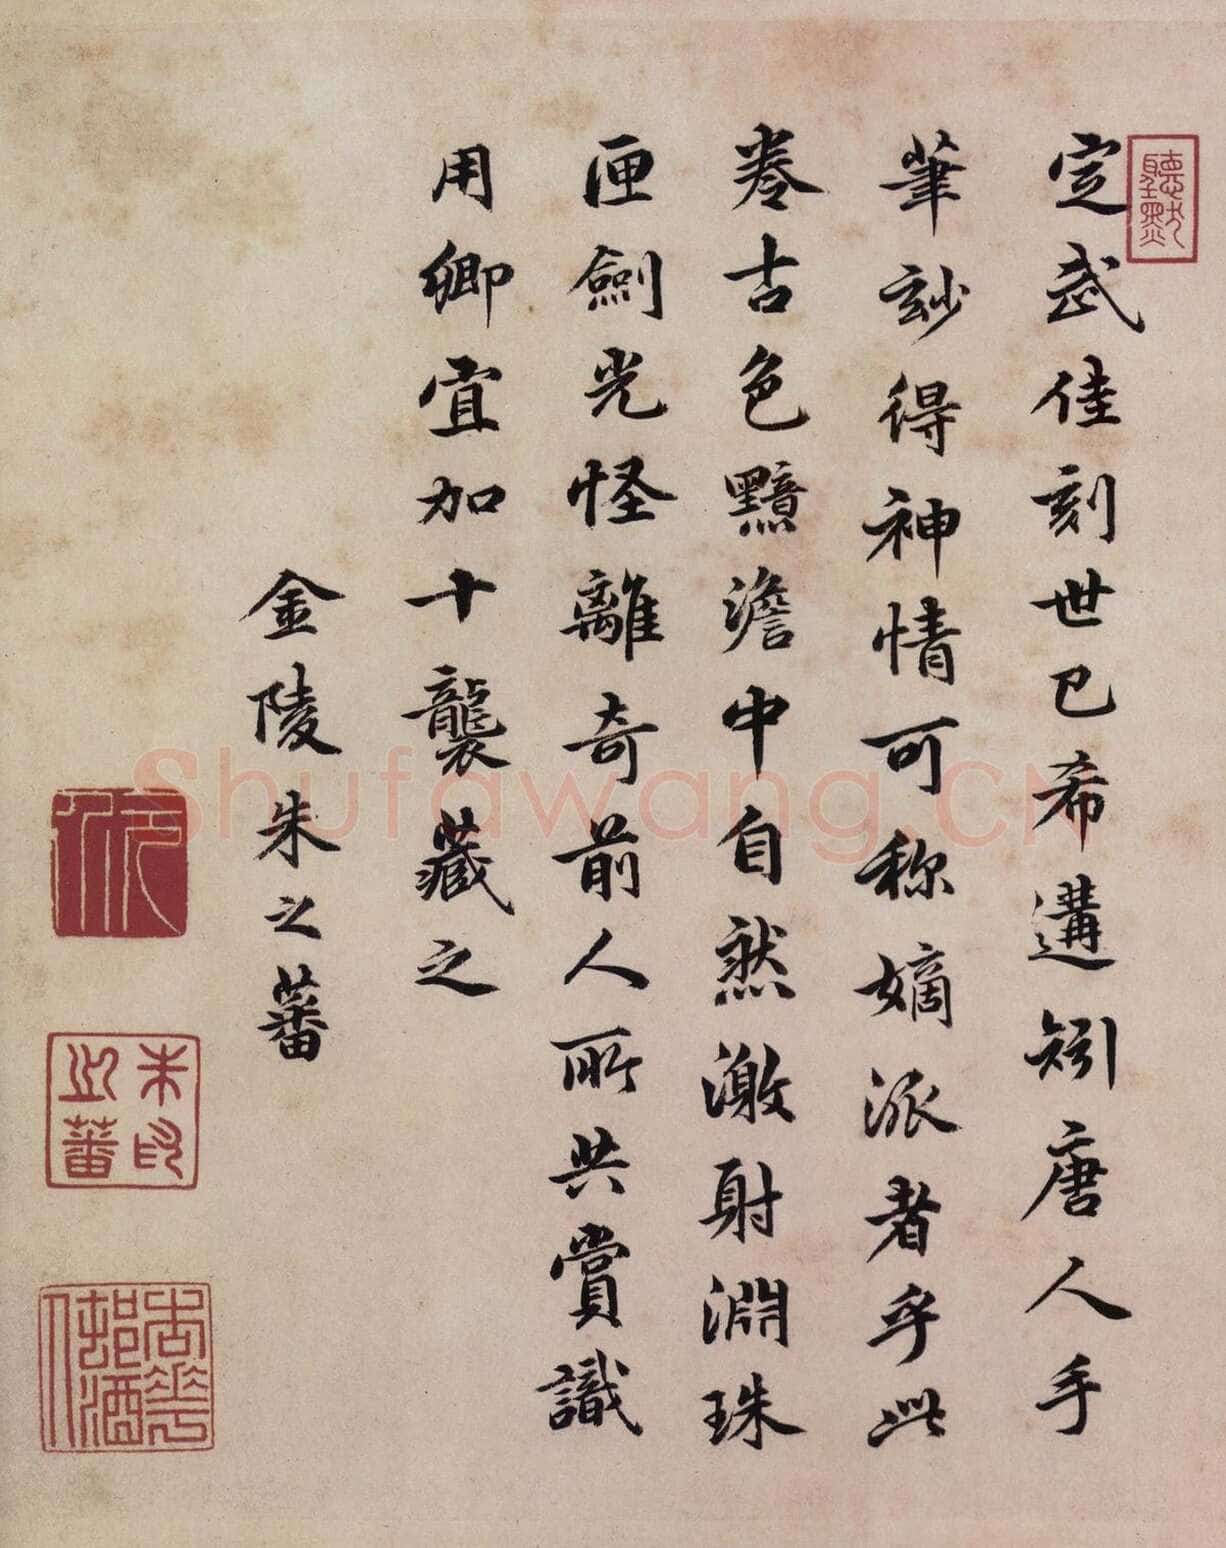 定武佳刻世已希遘矧唐人手
筆玅得神情可称嫡派者乎此
卷古色黯澹中自然激射淵珠
匣劍光怪離奇前人所共賞識
用卿宜加十襲藏之
金陵朱之蕃
朱之蕃印
Shufawang.CN